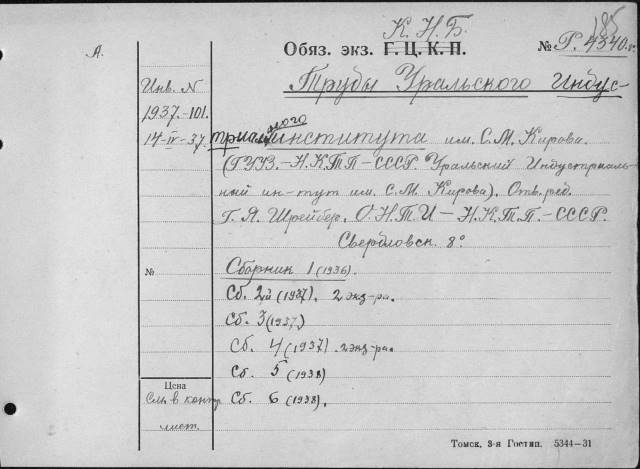 185
К. Н. Б.
А.
Обяз. экз. Г. Ц. К. П.
№ Р. 4340.
Инв. N
Труды Уральского Индус-
1937.-101.
14-IV-37.
триального института им. С. М. Кирова.
(ГУУЗ.-Н.К.Т.П-СССР. Уральский Индустриаль-
ный ин-тут им. С. М. Кирова). Отв. ред.
Г. Я. Шрейбер. О.Н.Т.И-Н.К.Т.П.-СССР.
Свердловск. 8°
№
Сборник 1 (1936).
Сб. 2й (1937). 2 экз-ра.
Сб. 3 (1937)
Сб. 4 (1937). 2 экз-ра.
Сб. 5 (1938)
Цена
См. в контр
Сб. 6 (1938).
лист.
Томск, 3-я Гостип. 5344-31